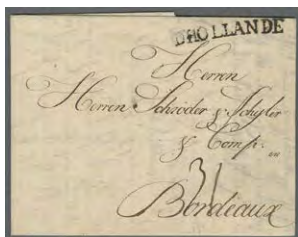 D'HOLLANDE
Herren
Herren Schröder & Schÿler
& Comp.
31
Bordeaux